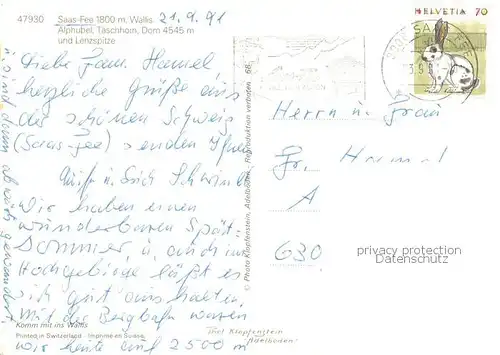 47930 Saas-Fee 1800 m, Wallis 21.9.91
Alphubel, Täschhorn, Dom 4545 m
und Lenzspitze
Liebe Fam. Hamel,
herzliche Grüße aus
der schönen Schweiz
(Saas-Fee) senden Ihnen
u. Erich Schwind
Wir haben einen
wunderbaren Spät-
Sommer, u. auch im
Hochgebirge läßt es
sich gut aushalten.
Mit der Bergbahn waren
wir heute auf 2500 m
u. sind dann abwärts gewandert.
Komm mit ins Wallis
Printed in Switzerland - Imprimé en Suisse
© Photo Klopfenstein, Adelboden - Reproduktion verboten 66
Photo Klopfenstein
Adelboden!
HELVETIA 70
SAAS
Herrn u. Frau
Fr. Hammel
A
630
privacy protection
Datenschutz